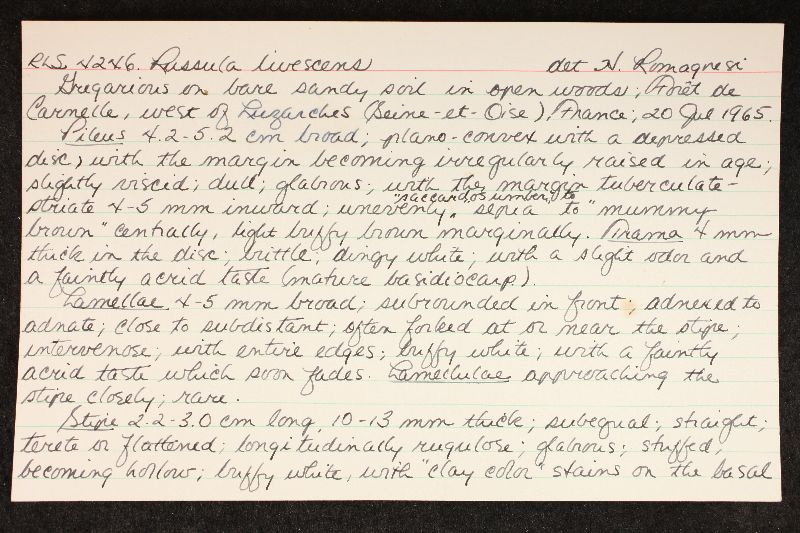 RLS. 4246. Russula livescens det H. Romagnesi
Gregarious on bare sandy soil in open woods; Forêt de
Carnelle, west of Luzarches (Seine-et-Oise), France; 20 Jul 1965.
Pileus 4.2-5.2 cm broad; plano-convex with a depressed
disc, with the margin becoming irregularly raised in age;
slightly viscid; dull; glabrous; with the margin tuberculate-
"saccardo's umber," to
striate 4-5 mm inward; unevenly sepia to "mummy
brown" centrally, light buffy brown marginally. Trama 4 mm
thick in the disc; brittle; dingy white; with a slight odor and
a faintly acrid taste (mature basidiocarp).
Lamellae 4-5 mm broad; subrounded in front; adnexed to
adnate; close to subdistant; often forked at or near the stipe;
intervenose; with entire edges; buffy white; with a faintly
acrid taste which soon fades. Lamellulae approaching the
stipe closely; rare.
Stipe 2.2-3.0 cm long, 10-13 mm thick; subequal; straight;
terete or flattened; longitudinally rugulose; glabrous; stuffed,
becoming hollow; buffy white, with "clay color" stains on the basal